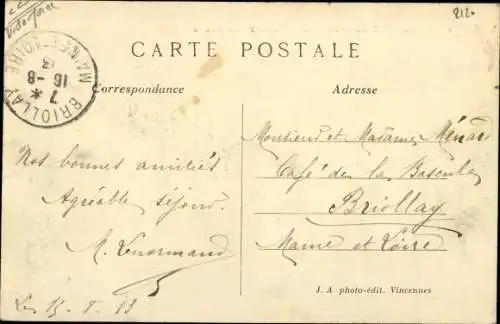 212.
CARTE POSTALE
Correspondance
Adresse
BRIOLLAY
MAINE-ET-LOIRE
7 *
16 -8
13
Nos bonnes amitiés
Agréable séjour.
M. Lenormand
Monsieur et Madame Ménard
Café de la Bascule
Briollay
Maine et Loire
J. A photo-édit. Vincennes